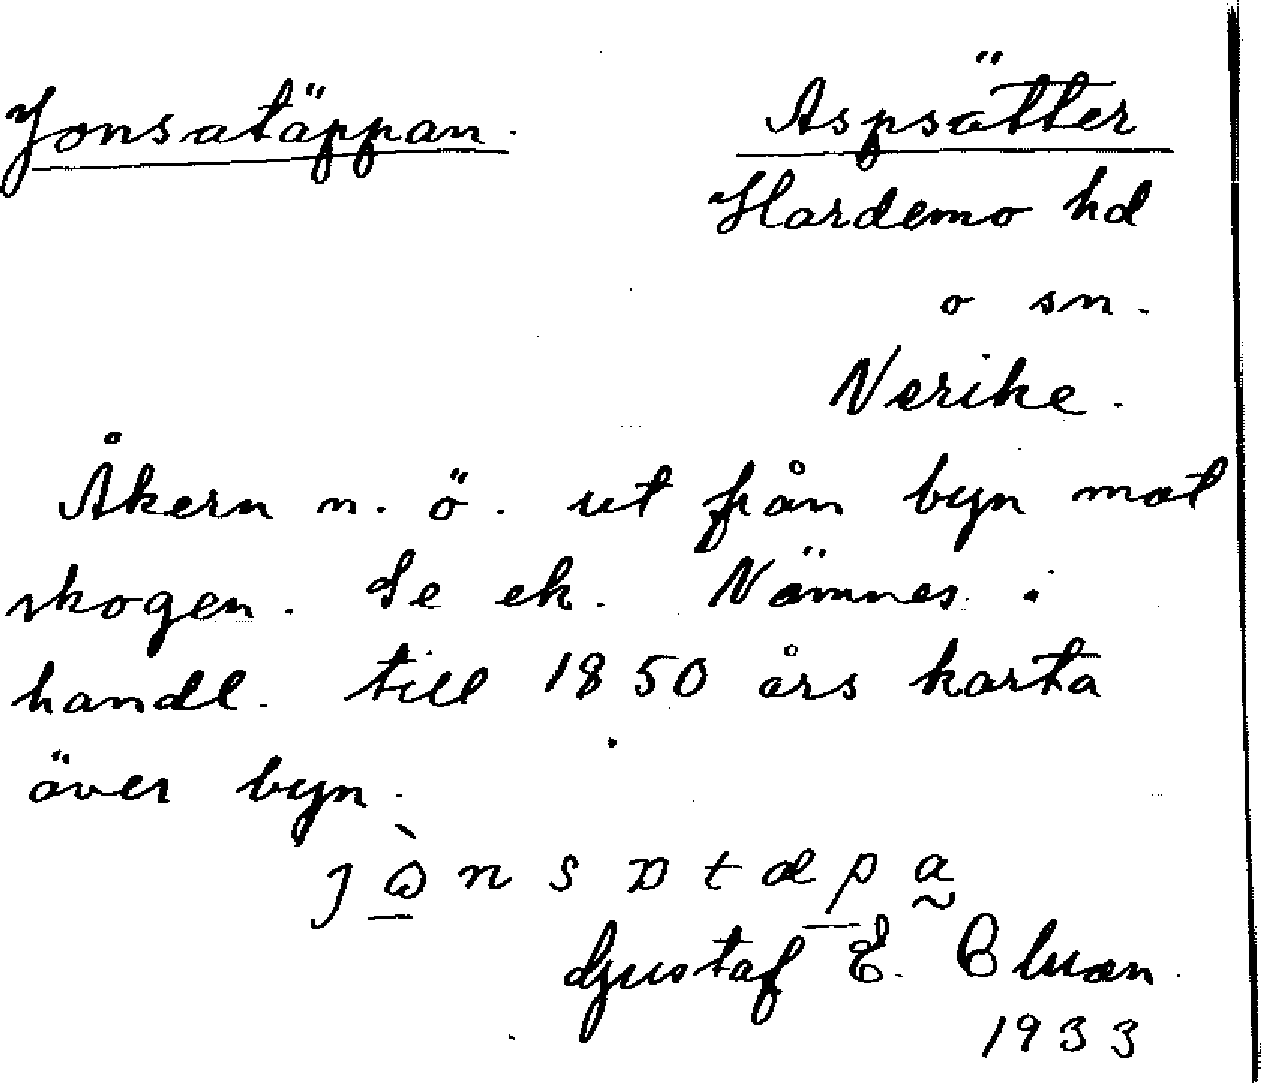 Jonsatäppan. Aspsätter
Hardemo hd
o sn.
Nerike.
Åkern n. ö. ut från byn mot
skogen. Se ek. Nämnes i
handl. till 1850 års karta
över byn.
Gustaf E.
1933